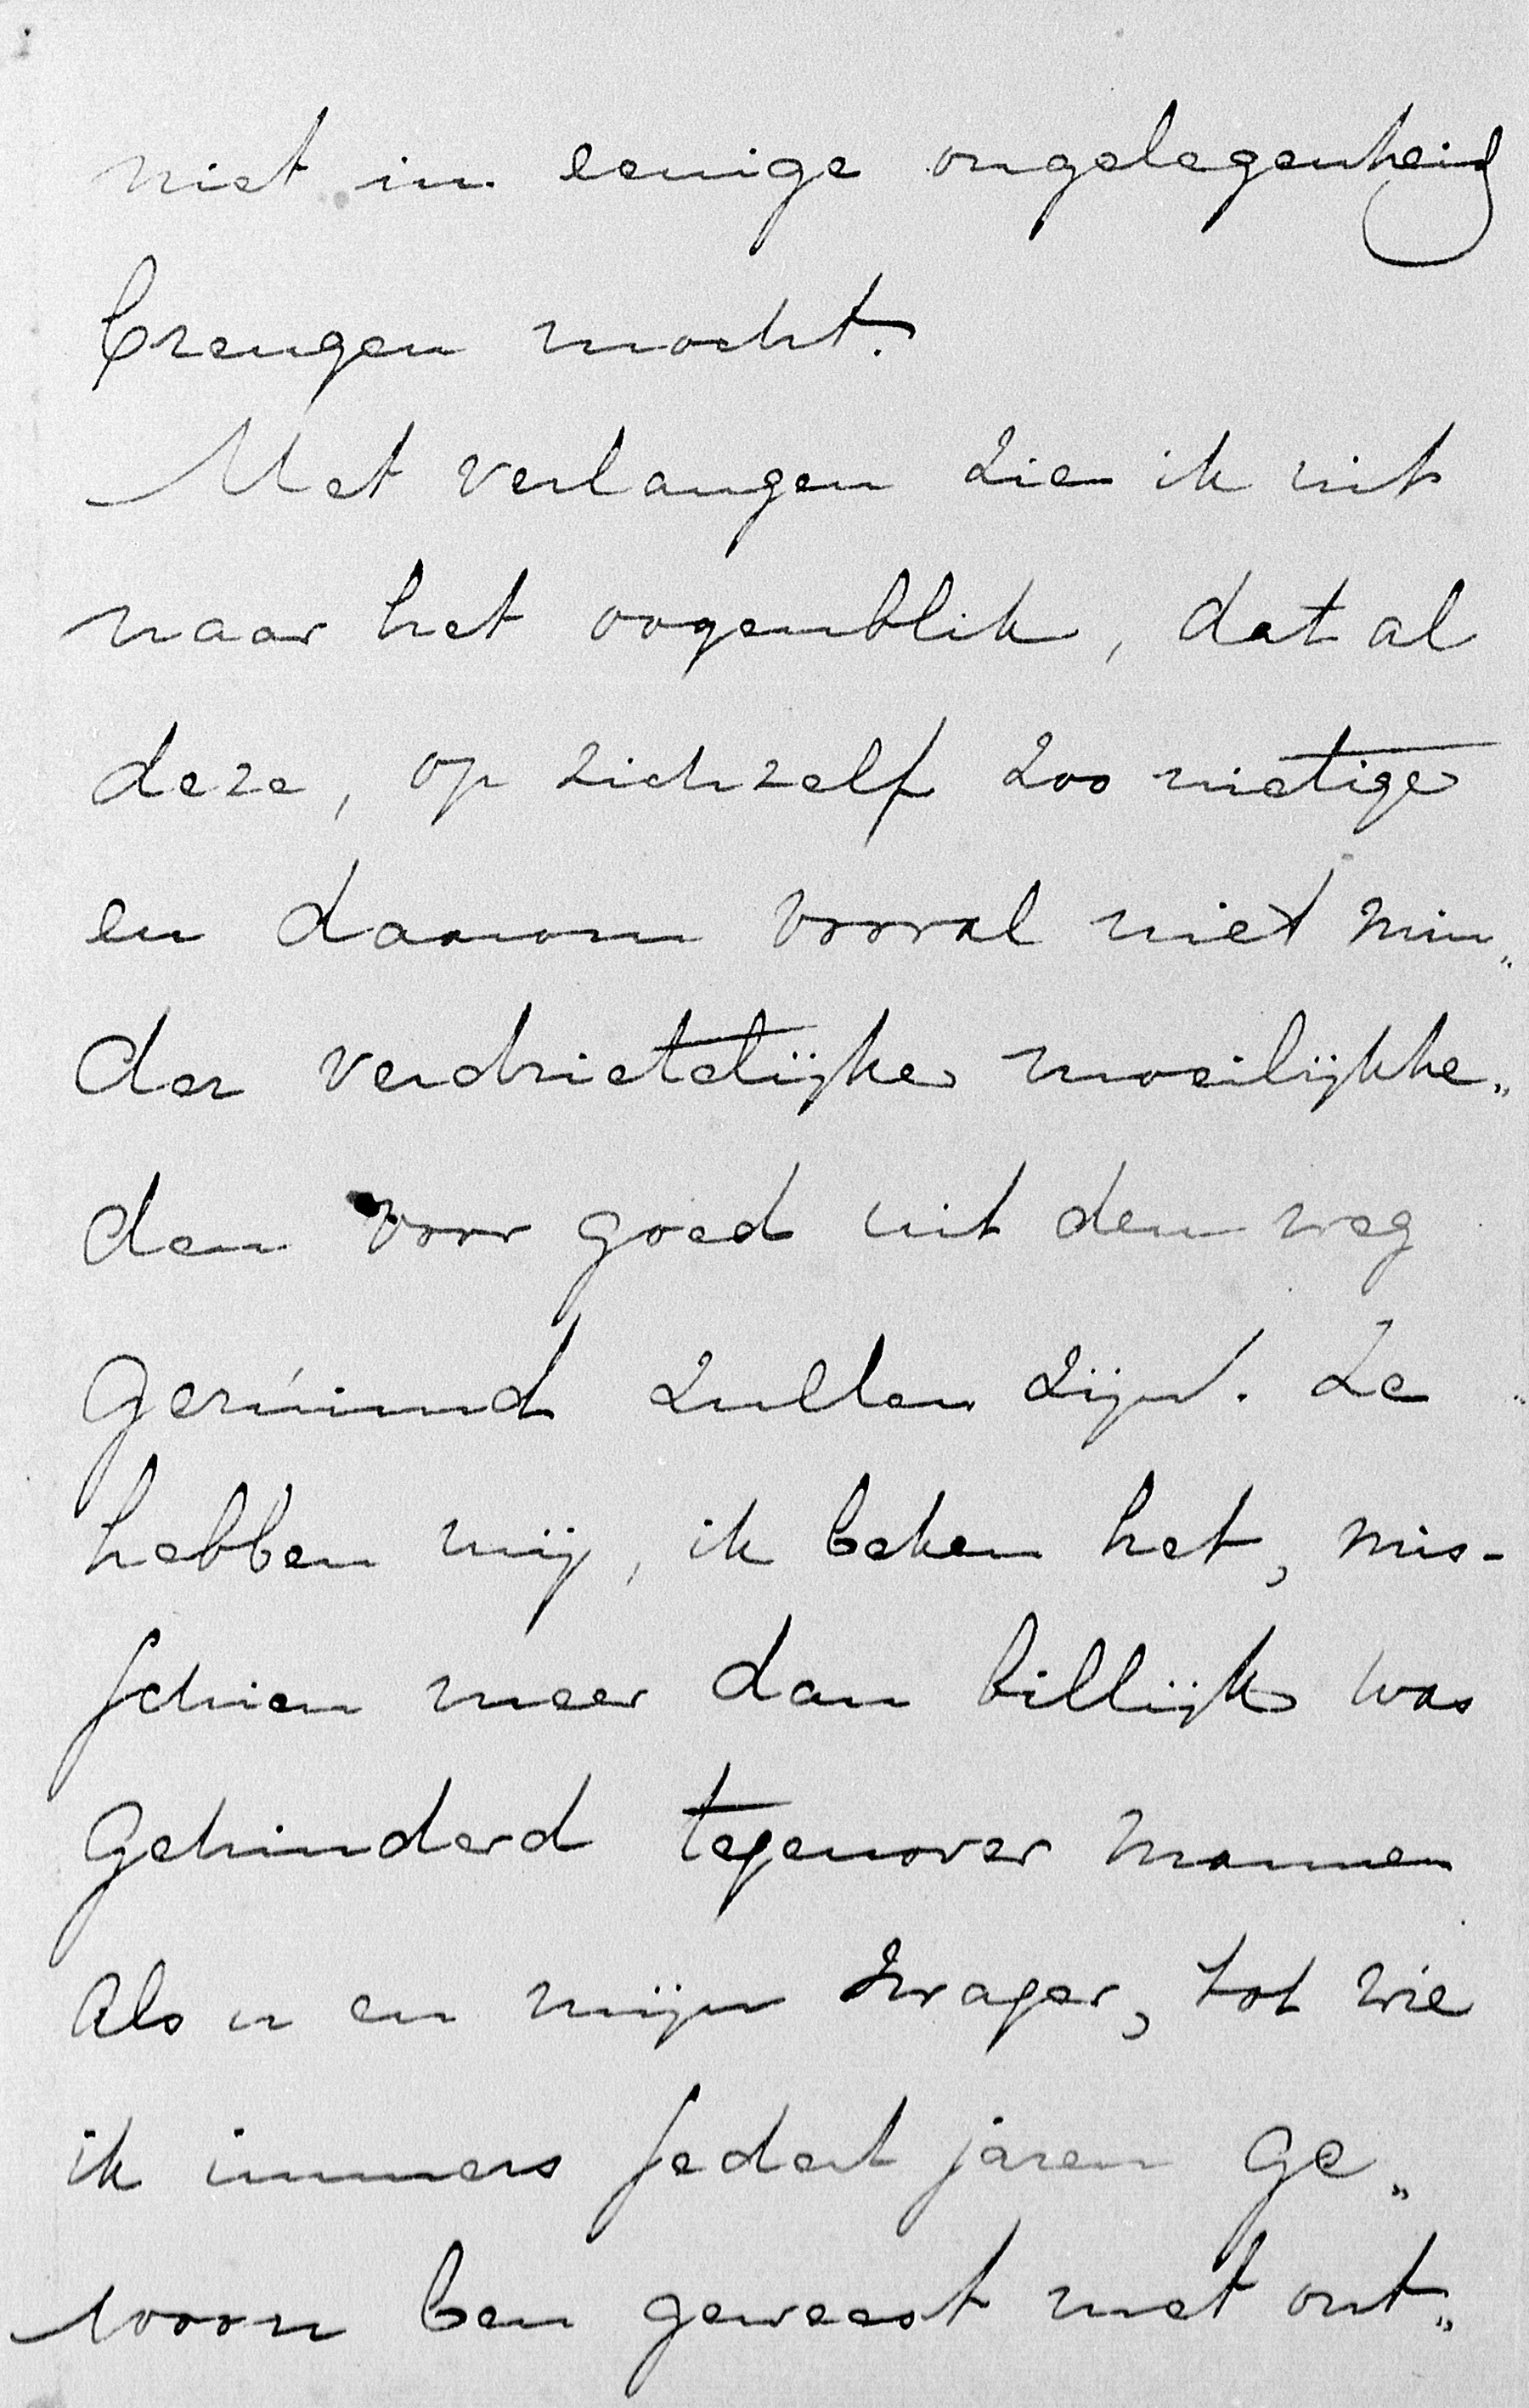 niet in eenige ongelegenheid
brengen mocht.
Met verlangen zie ik uit
naar het oogenblik, dat al
deze, op zichzelf zoo nietige
en daarom vooral niet min„
der verdrietelijke moeilijkhe„
den voor goed uit den weg
geruimd zullen zijn. Ze
hebben mij, ik beken het, mis-
schien meer dan billijk was
gehinderd tegenover mannen
als u en mijn zwager, tot wie
ik immers sedert jaren ge„
woon ben geweest met ont„